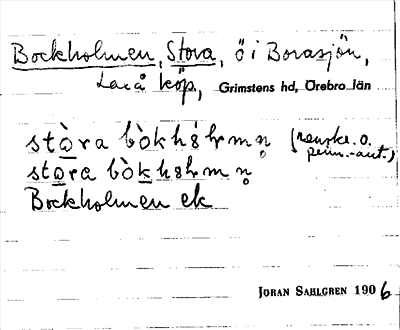 Bockholmen, Stora, ö i Borasjön,
Laxå köp, Grimstens hd, Örebro län
stòra bòkhόlmn̥
stora bòkholmn̥
Bockholmen ek
JÖRAN SAHLGREN 1906